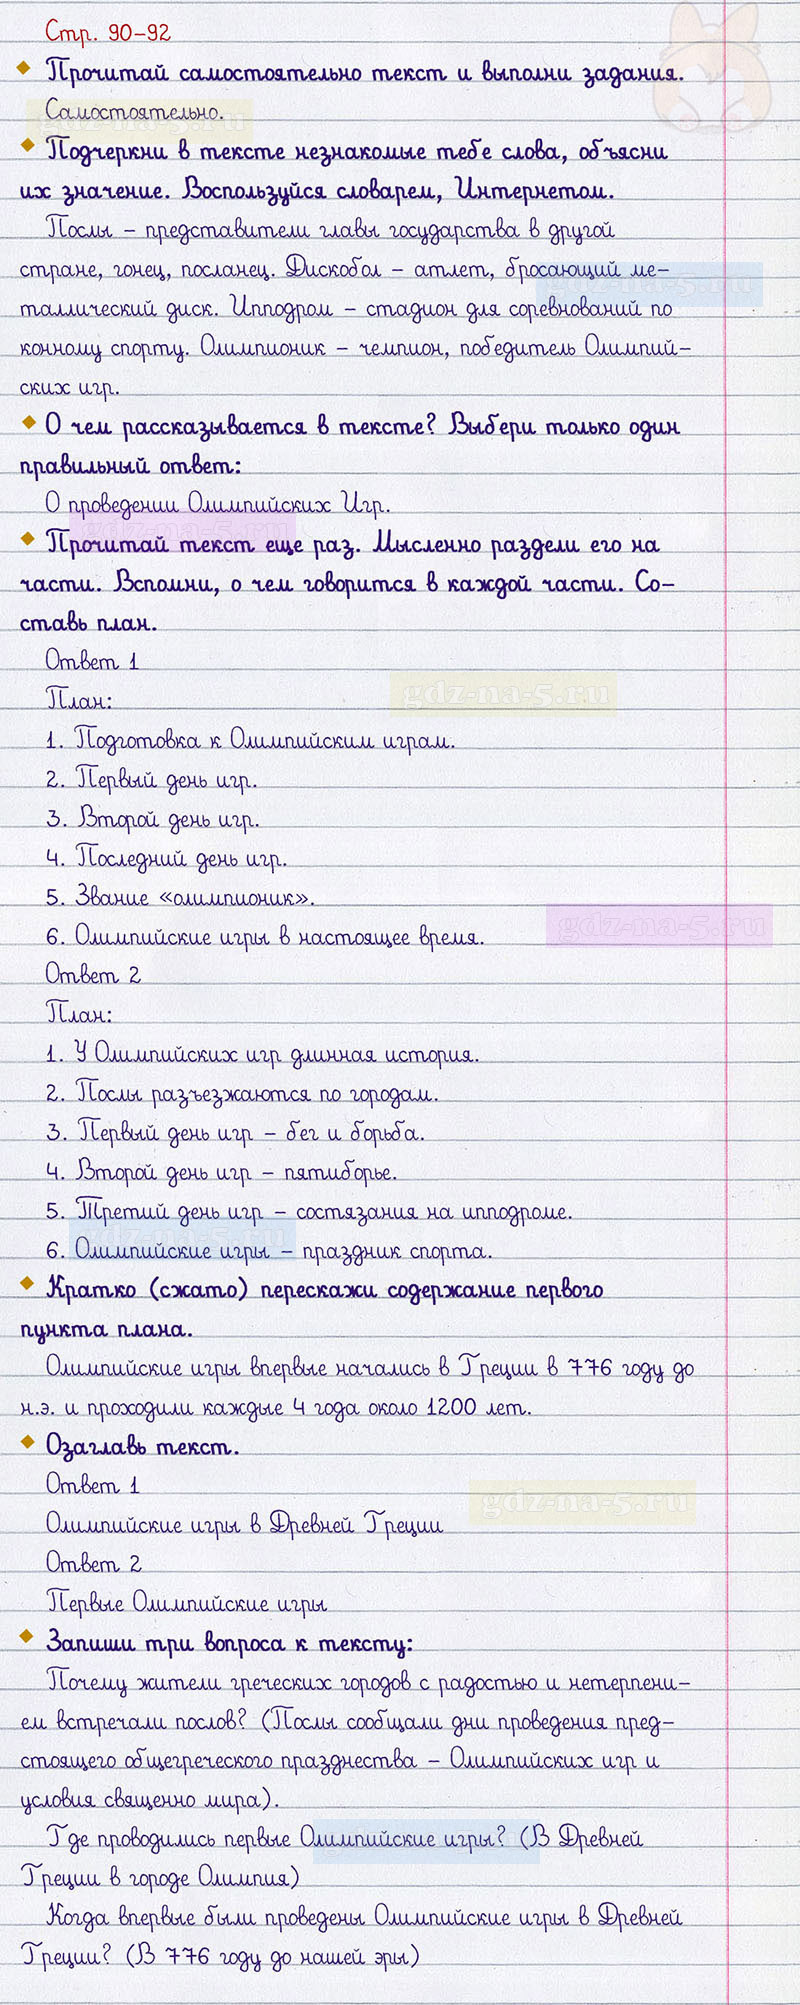 Стр. 90-92
Прочитай самостоятельно текст и выполни задания.
Самостоятельно.
gdz-na-5.ru
Подчеркни в тексте незнакомые тебе слова, объясни
их значение. Воспользуйся словарем, Интернетом.
Послы – представители главы государства в другой
стране, гонец, посланец. Дискобол – атлет, бросающий ме-
gdz-na-5.ru
таллический диск. Ипподром – стадион для соревнований по
конному спорту. Олимпионик – чемпион, победитель Олимпий-
ских игр.
О чем рассказывается в тексте? Выбери только один
правильный ответ:
О проведении Олимпийских Игр.
gdz-na-5.ru
Прочитай текст еще раз. Мысленно раздели его на
части. Вспомни, о чем говорится в каждой части. Со-
ставь план.
Ответ 1
План:
gdz-na-5.ru
1. Подготовка к Олимпийским играм.
2. Первый день игр.
3. Второй день игр.
4. Последний день игр.
5. Звание «олимпионик».
gdz-na-5.ru
6. Олимпийские игры в настоящее время.
Ответ 2
План:
1. У Олимпийских игр длинная история.
2. Послы разъезжаются по городам.
3. Первый день игр – бег и борьба.
4. Второй день игр – пятиборье.
5. Третий день игр – состязания на ипподроме.
gdz-na-5.ru
6. Олимпийские игры – праздник спорта.
Кратко (сжато) перескажи содержание первого
пункта плана.
Олимпийские игры впервые начались в Греции в 776 году до
н.э. и проходили каждые 4 года около 1200 лет.
Озаглавь текст.
Ответ 1
gdz-na-5.ru
Олимпийские игры в Древней Греции
Ответ 2
Первые Олимпийские игры
Запиши три вопроса к тексту:
Почему жители греческих городов с радостью и нетерпени-
ем встречали послов? (Послы сообщали дни проведения пред-
стоящего общегреческого празднества – Олимпийских игр и
условия священно мира).
Где проводились первые Олимпийские игры? (В Древней
gdz-na-5.ru
Греции в городе Олимпия)
Когда впервые были проведены Олимпийские игры в Древней
Греции? (В 776 году до нашей эры)